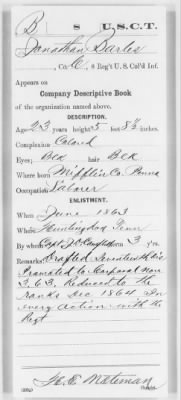 B 8 U.S.C.T.
Jonathan Barles
, Co. C, 8 Reg't U. S. Col'd Inf.
Appears on
Company Descriptive Book
of the organization named above.
DESCRIPTION.
Age 23 years; height 5 feet 8½ inches.
Complexion Colored
Eyes; Blk hair Blk
Where born Mifflin Co. Penna
Occupation Laborer
ENLISTMENT.
When June, 1863
Where Huntingdon Penn
By whom Capt J. D. Campbell; term 3 y'rs.
Remarks: Drafted Seventeenth Dis
Promoted to Corporal Nov
3. 63. Reduced to the
ranks Dec 1864 In
every action with the
Regt
H. E. Mateman